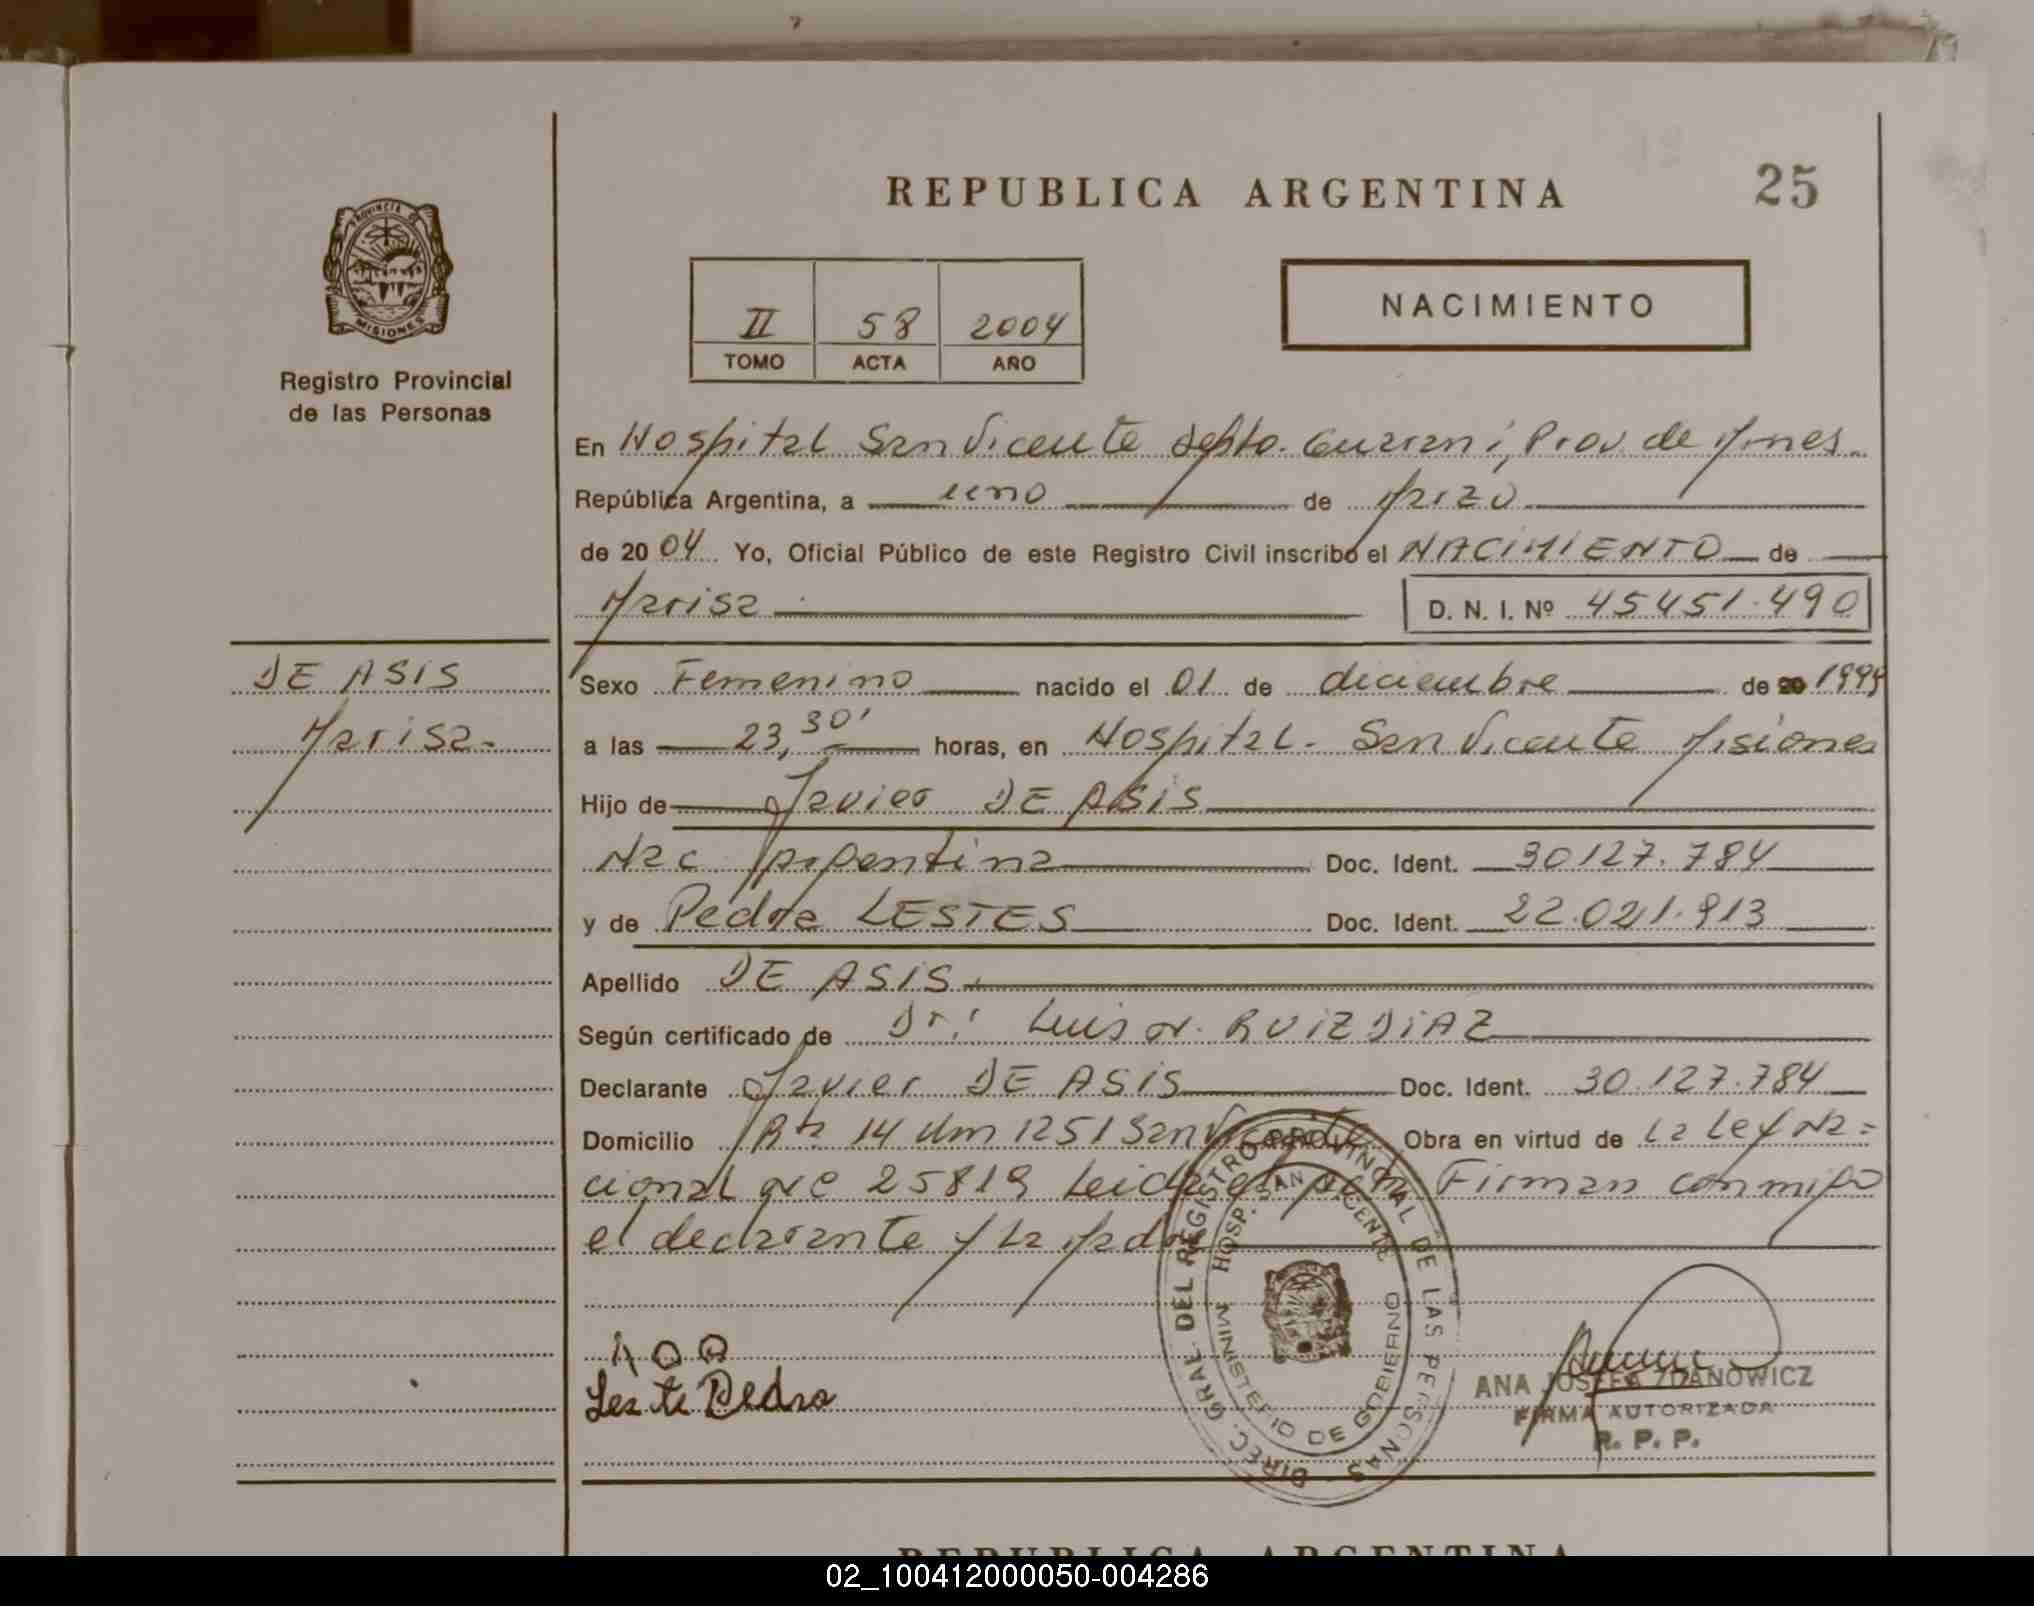 REPUBLICA ARGENTINA
25
PROVINCIA DE
MISIONES
Registro Provincial
de las Personas
II 58 2004
TOMO ACTA AÑO
NACIMIENTO
En Hospital San Vicente Depto. Guarani, Prov. de Mnes.
República Argentina, a uno de Marzo
de 20 04 Yo, Oficial Público de este Registro Civil inscribo el NACIMIENTO de
Marisa
D. N. I. Nº 45451.490
DE ASIS
Marisa.
Sexo Femenino nacido el 01 de diciembre de 20 1999
a las 23,30' horas, en Hospital. San Vicente Misiones
Hijo de Javier DE ASIS
Nac Argentina Doc. Ident. 30127.784
y de Pedra LESTES Doc. Ident. 22.021.913
Apellido DE ASIS.
Según certificado de Dr: Luis A. RUIZ DIAZ
Declarante Javier DE ASIS Doc. Ident. 30.127.784
Domicilio Rta 14 Km 1251 San Vicente Obra en virtud de La Ley Na=
cional Nro 25819 Leida el Acta Firman conmigo
el declarante y La Madre
Leste Pedra
DIREC. GRAL. DEL REGISTRO PROVINCIAL DE LAS PERSONAS
HOSP. SAN VICENTE
MINISTERIO DE GOBIERNO
ANA JOSEFA ZDANOWICZ
FIRMA AUTORIZADA
R. P. P.
REPUBLICA ARGENTINA
02_100412000050-004286